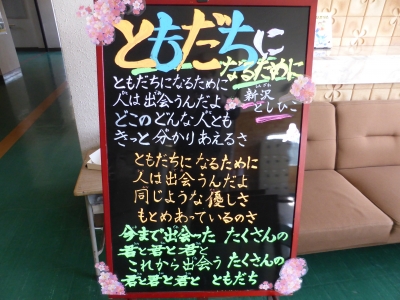 ともだちに
なるために
新沢
としひこ
ともだちになるために
人は出会うんだよ
どこのどんな人とも
きっと分かりあえるさ
ともだちになるために
人は出会うんだよ
同じような優しさ
もとめあっているのさ
今まで出会った たくさんの
君と君と君と
これから出会う たくさんの
君と君と君と ともだち